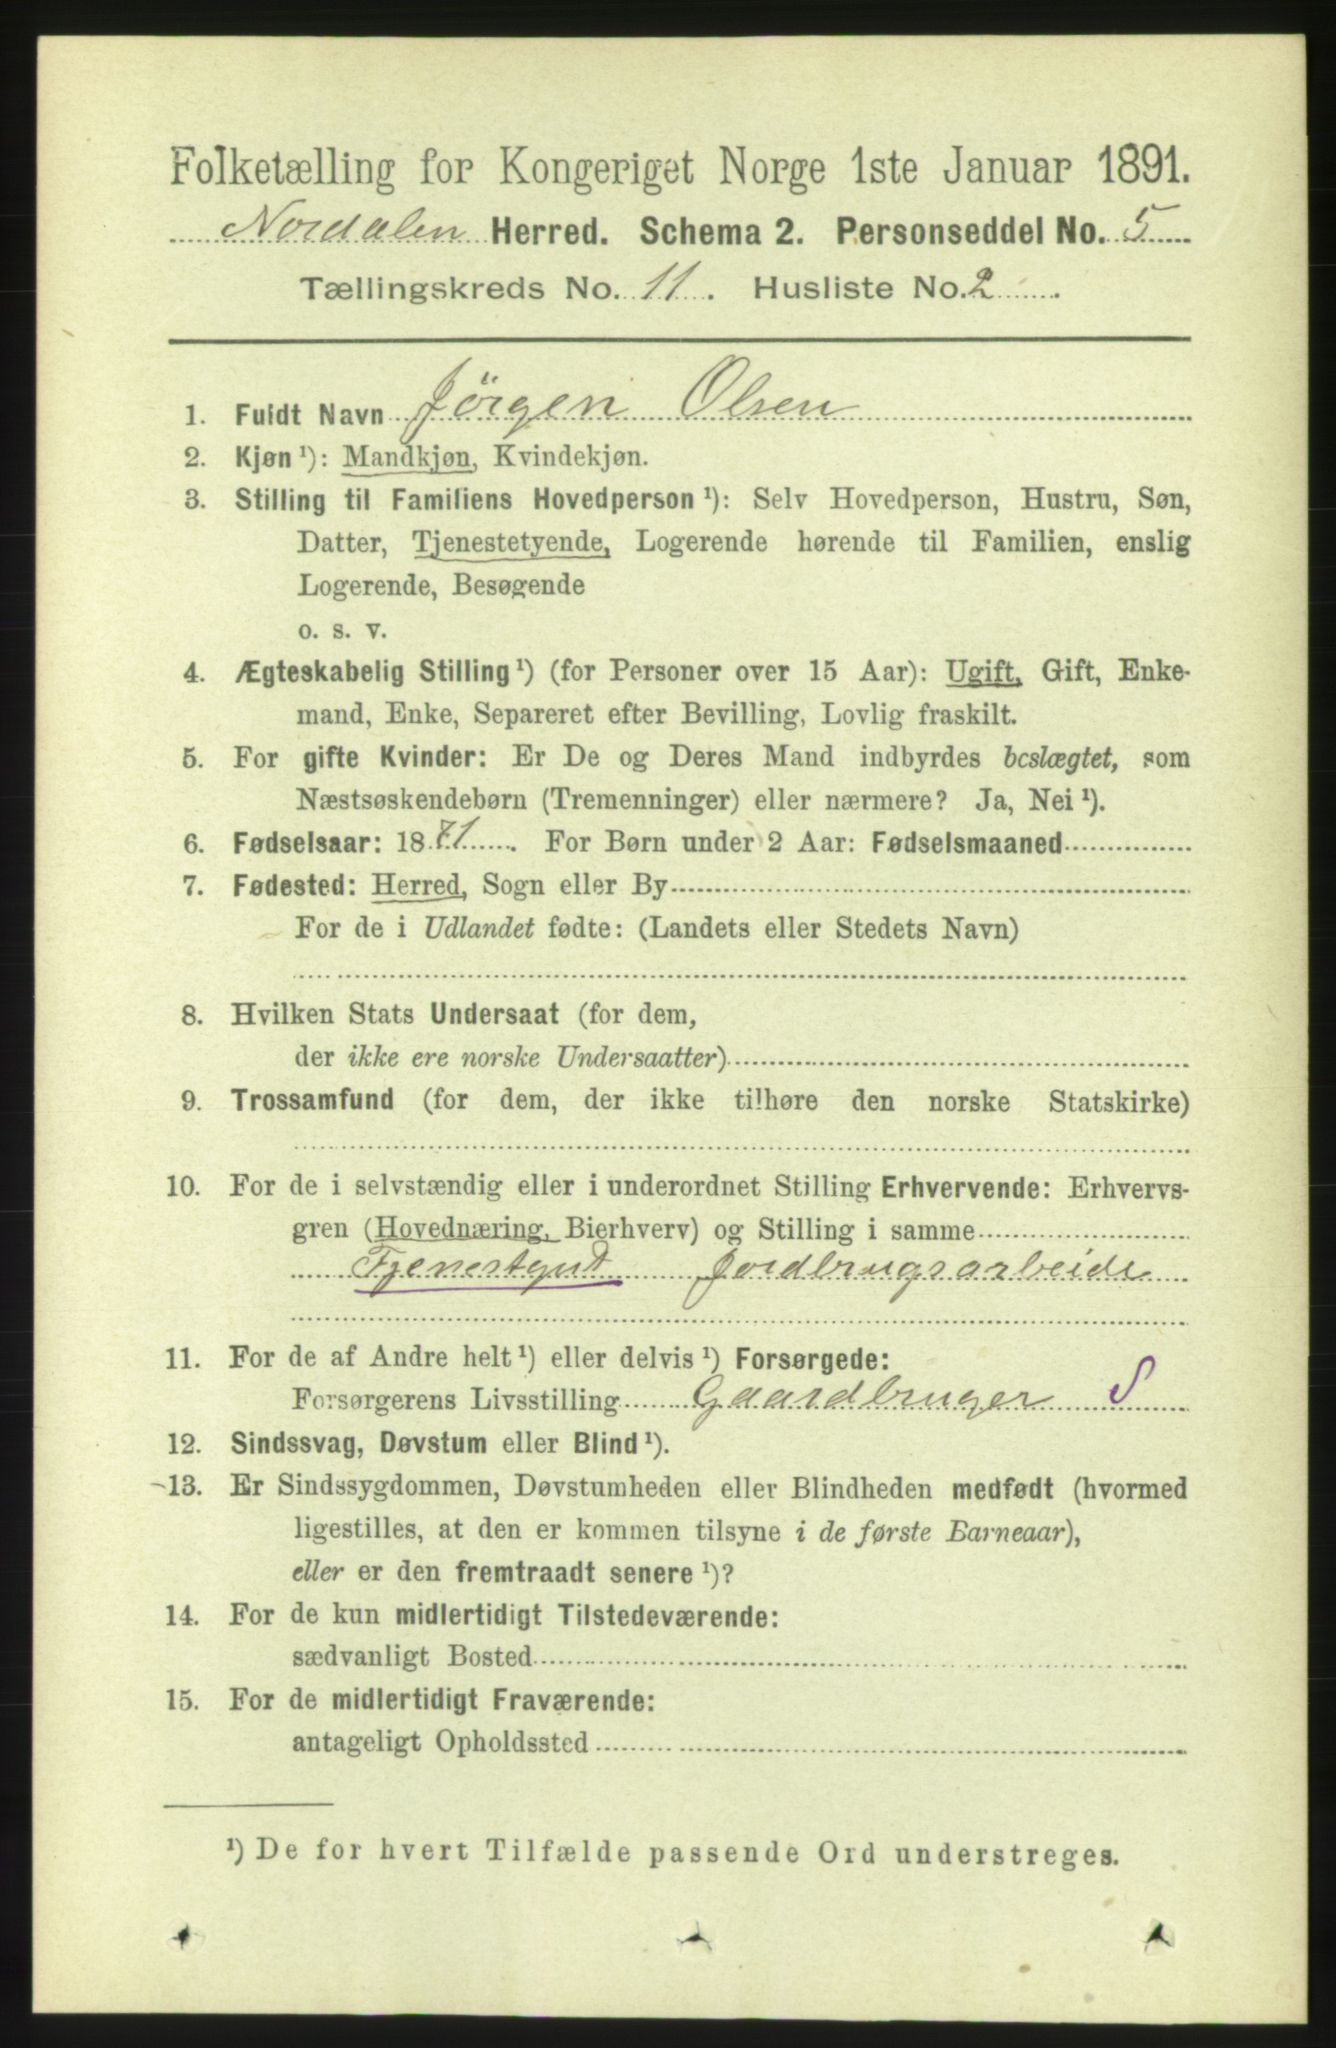 Folketælling for Kongeriget Norge 1ste Januar 1891.
Nordalen Herred. Schema 2. Personseddel No. 5
Tællingskreds No. 11. Husliste No. 2.
1. Fuldt Navn Jörgen Olsen
2. Kjøn ¹): Mandkjøn, Kvindekjøn.
3. Stilling til Familiens Hovedperson ¹): Selv Hovedperson, Hustru, Søn,
Datter, Tjenestetyende, Logerende hørende til Familien, enslig
Logerende, Besøgende
o. s. v.
4. Ægteskabelig Stilling ¹) (for Personer over 15 Aar): Ugift, Gift, Enke-
mand, Enke, Separeret efter Bevilling, Lovlig fraskilt.
5. For gifte Kvinder: Er De og Deres Mand indbyrdes beslægtet, som
Næstsøskendebørn (Tremenninger) eller nærmere? Ja, Nei ¹).
6. Fødselsaar: 1871. For Børn under 2 Aar: Fødselsmaaned
7. Fødested: Herred, Sogn eller By
For de i Udlandet fødte: (Landets eller Stedets Navn)
8. Hvilken Stats Undersaat (for dem,
der ikke ere norske Undersaatter)
9. Trossamfund (for dem, der ikke tilhøre den norske Statskirke)
10. For de i selvstændig eller i underordnet Stilling Erhvervende: Erhvervs-
gren (Hovednæring, Bierhverv) og Stilling i samme
Tjenestgut Jordbrugsarbeide
11. For de af Andre helt ¹) eller delvis ¹) Forsørgede:
Forsørgerens Livsstilling Gaardbruger S
12. Sindssvag, Døvstum eller Blind ¹).
13. Er Sindssygdommen, Døvstumheden eller Blindheden medfødt (hvormed
ligestilles, at den er kommen tilsyne i de første Barneaar),
eller er den fremtraadt senere ¹)?
14. For de kun midlertidigt Tilstedeværende:
sædvanligt Bosted
15. For de midlertidigt Fraværende:
antageligt Opholdssted
¹) De for hvert Tilfælde passende Ord understreges.